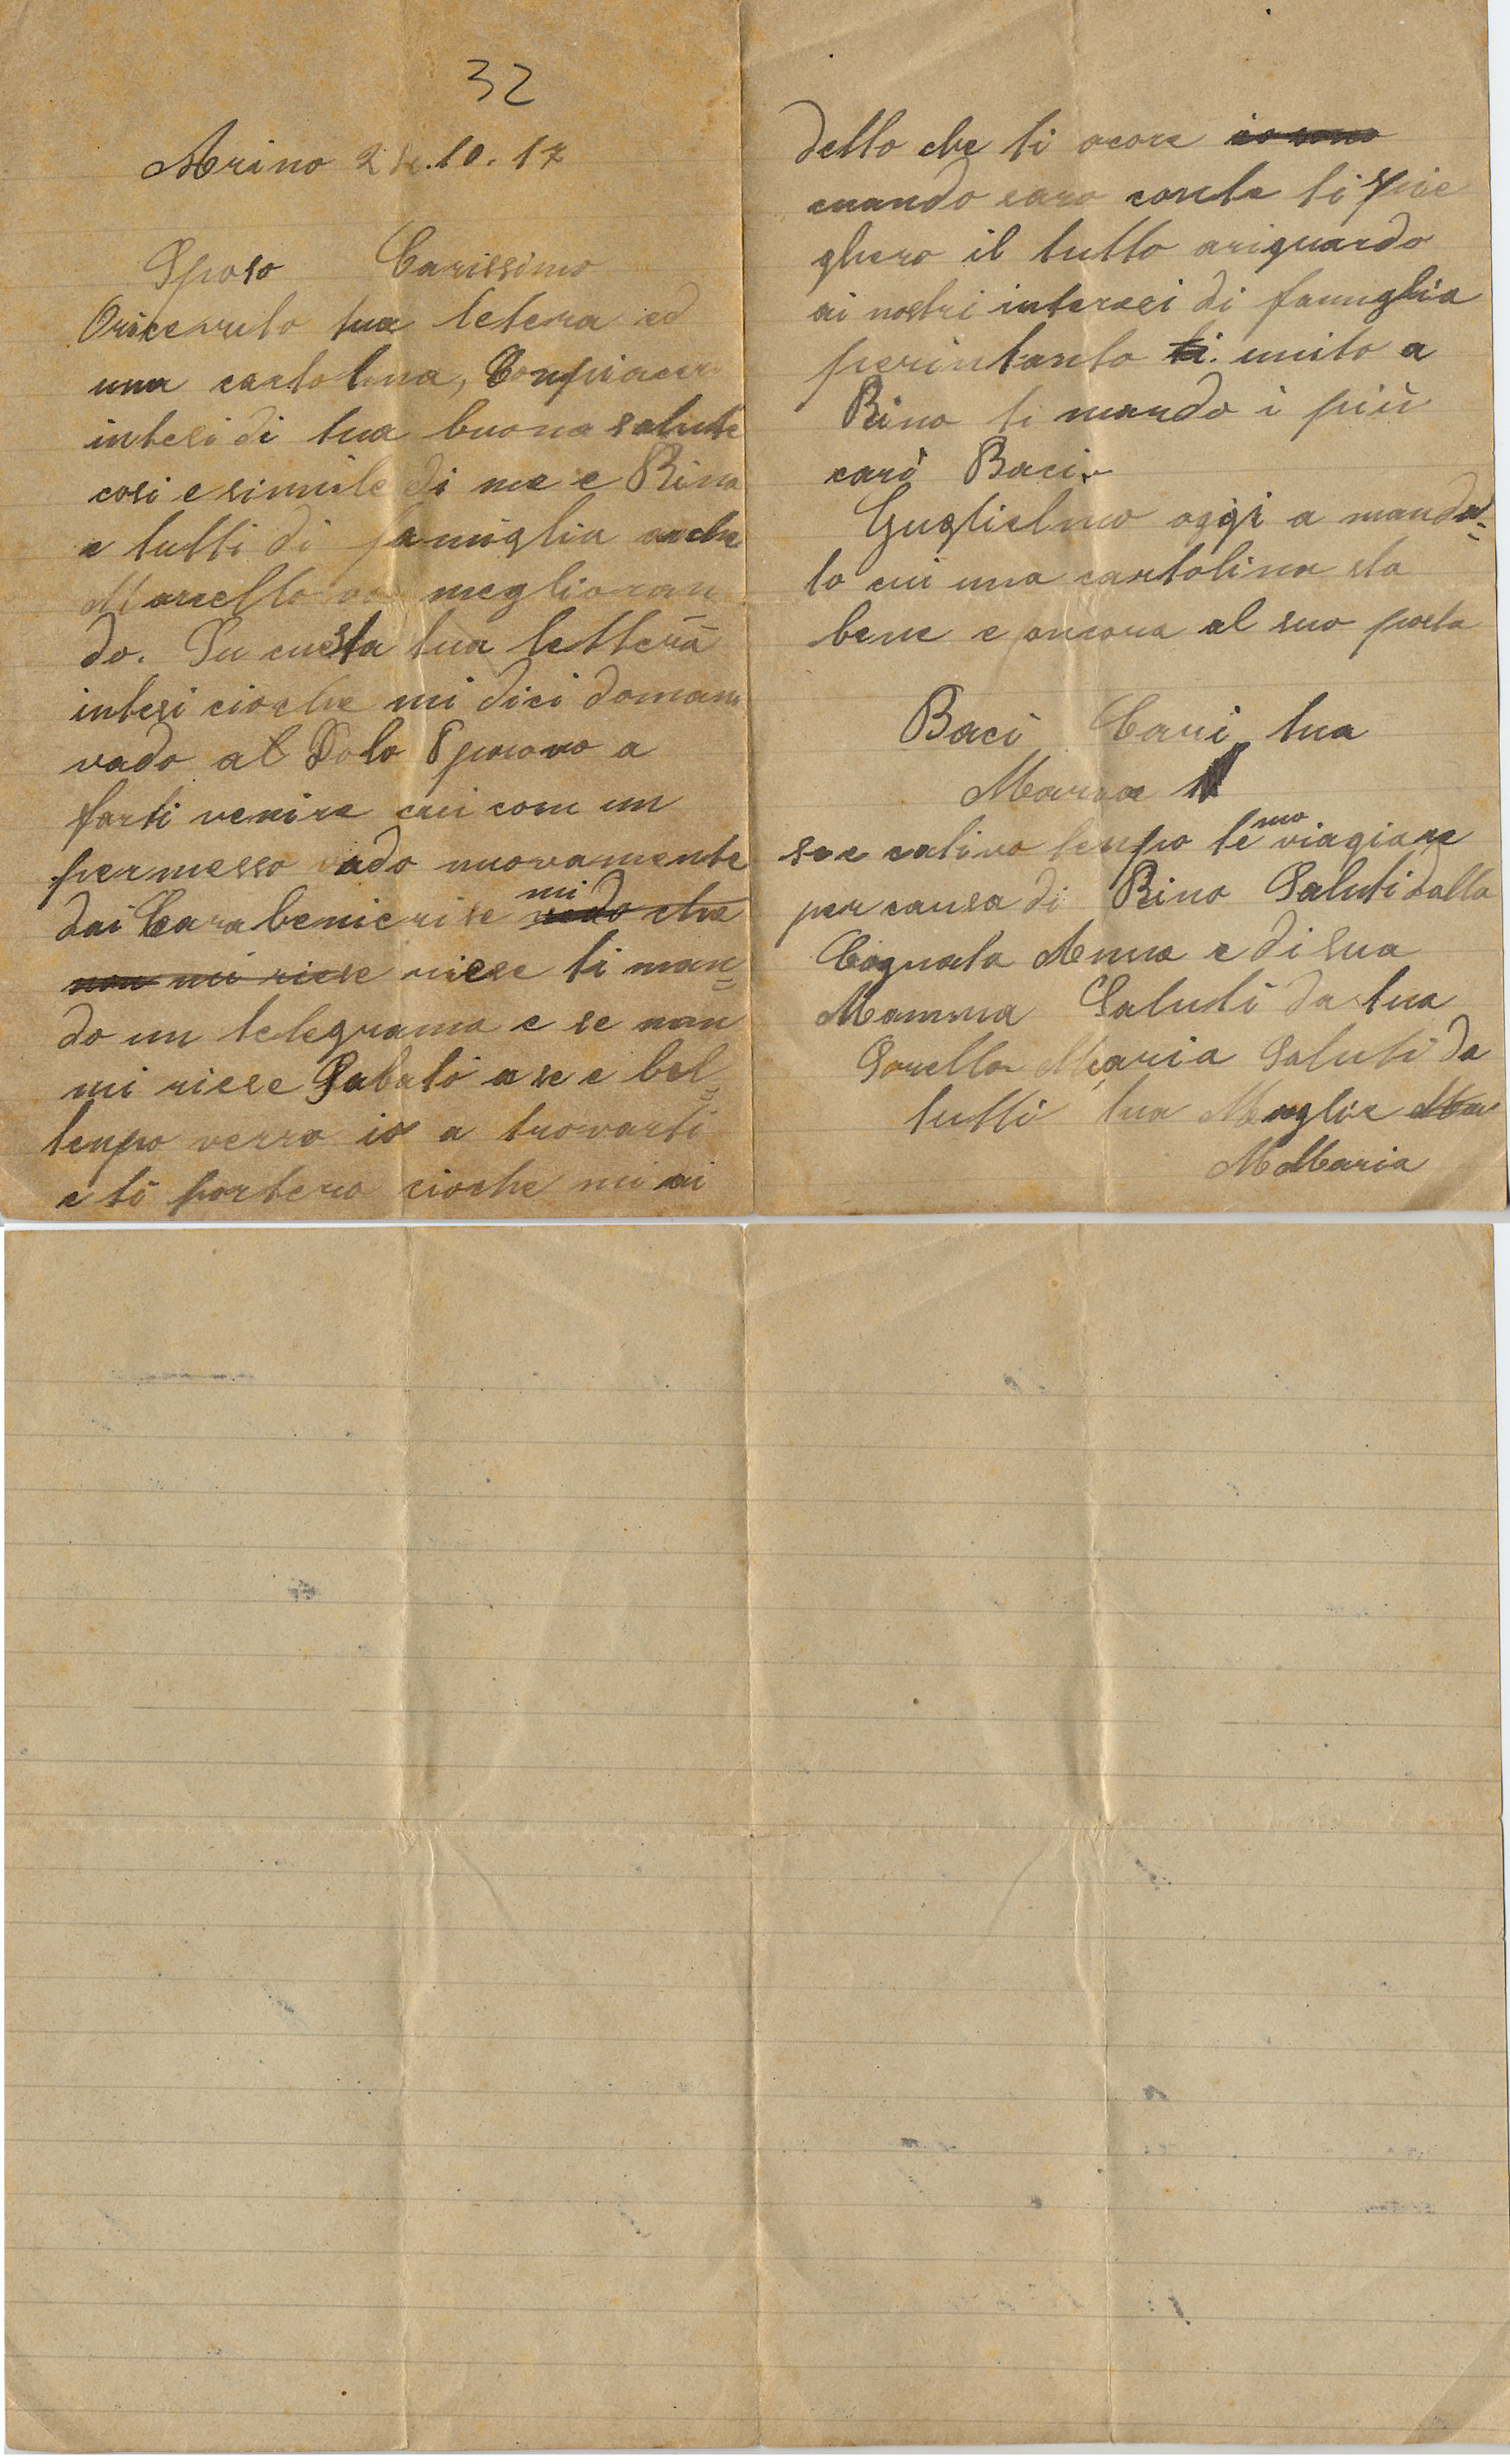 32
Arino 24.10.17
Sposo Carissimo
Oricevuto tua letera ed
una cartolina, Conpiacere
intesi di tua buona salute
cosi e simile di me e Rino
e tutti di famiglia anche
Marcello va meglioran
do. Su cuesta tua lettera
intesi cioche mi dici domani
vado al Dolo Sprovo a
farti venire cui com un
permesso vado nuovamente
dai Carabenieri se mi vedo che
non mi riese riese ti man=
do un telegrama e se non
mi riese Sabato a se e bel=
tenpo verro io a trovarti
e ti portero cioche mi ai
detto che ti ocore io sono
cuando saro conte ti spie
ghero il tutto ariguardo
ai nostri interesi di famiglia
perintanto ti. unito a
Rino ti mando i più
cari Baci
Guglielmo oggi a manda=
to cui una cartolina sta
bene e ancora al suo posto
Baci Cari tua
Maria
se e cativo tenpo temo viagiare
per causa di Rino Saluti dalla
Cognata Anna e di sua
Mamma Saluti da tua
Sorella Maria Saluti da
tutti tua Moglie
MMaria